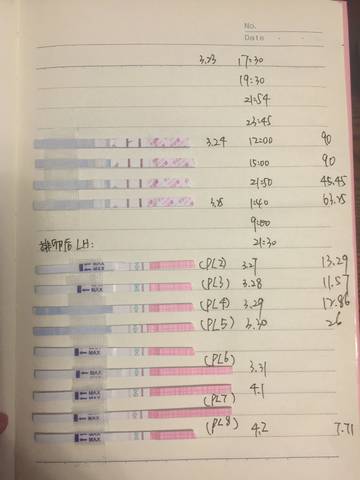 No.
Date
3.23 17:30
19:30
21:54
23:45
3.24 12:00 90
15:00 90
21:50 45.45
3.25 1:40 63.25
9:00
21:30
排卵后LH:
MAX (PL2) 3.27 13.29
MAX (PL3) 3.28 11.57
(PL4) 3.29 12.86
(PL5) 3.30 26
MAX (PL6)
MAX 3.31
MAX 4.1
MAX (PL7)
MAX
MAX (PL8) 4.2 7.71